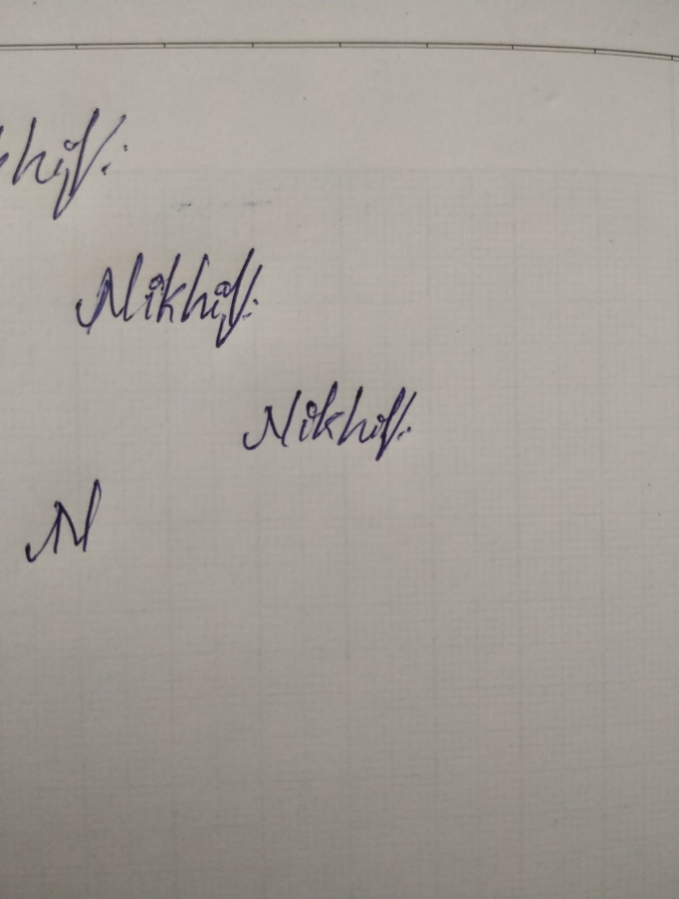 Nikhil.
Nikhil.
N